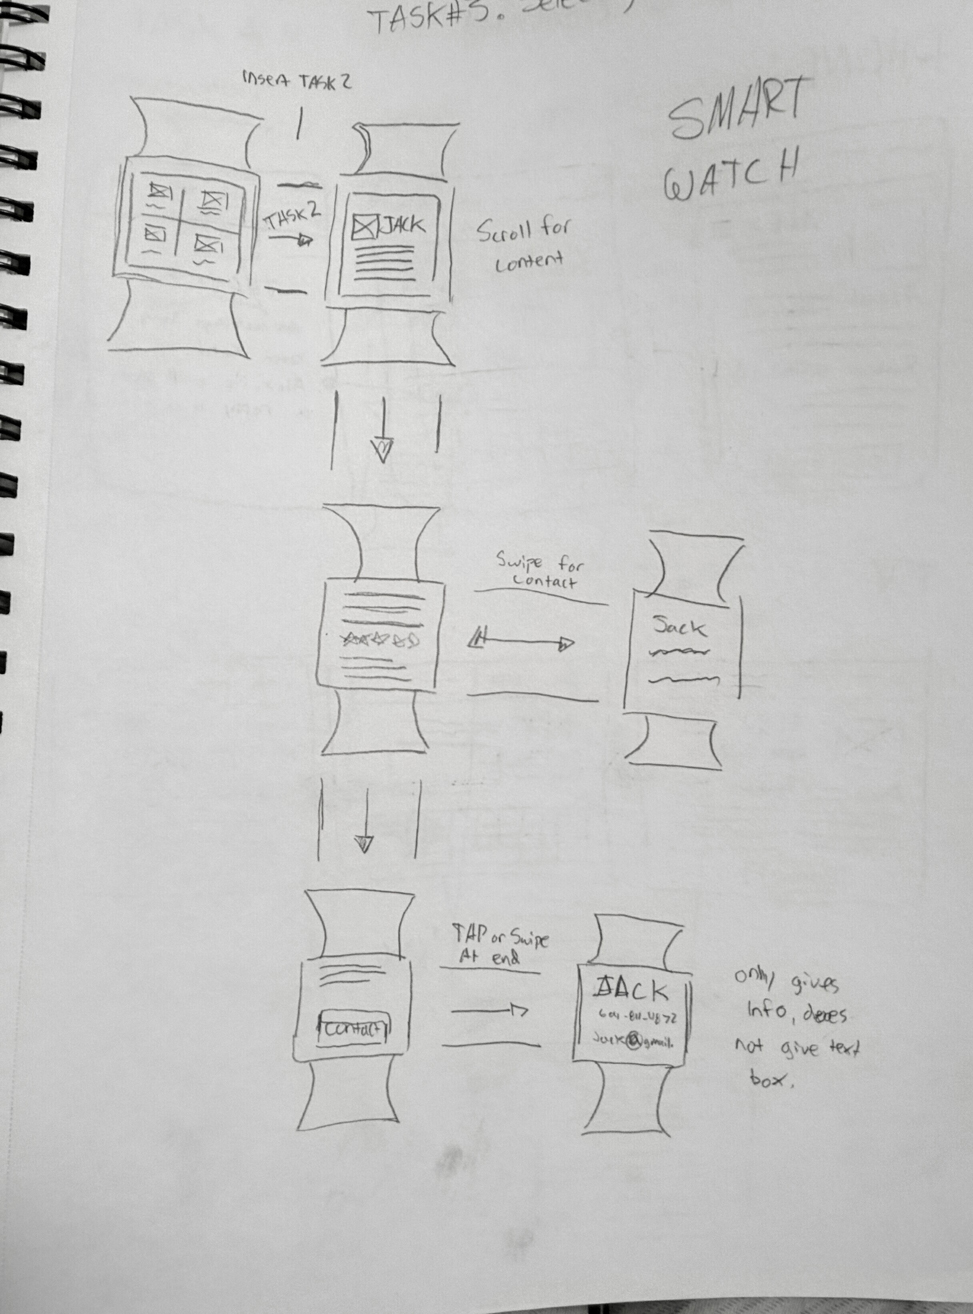 TASK#3. Select
Insert TASK 2
SMART
WATCH
TASK2
JACK
Scroll for
content
Swipe for
contact
Jack
TAP or Swipe
At end
contact
JACK
Jack@gmail
only gives
Info, does
not give text
box.